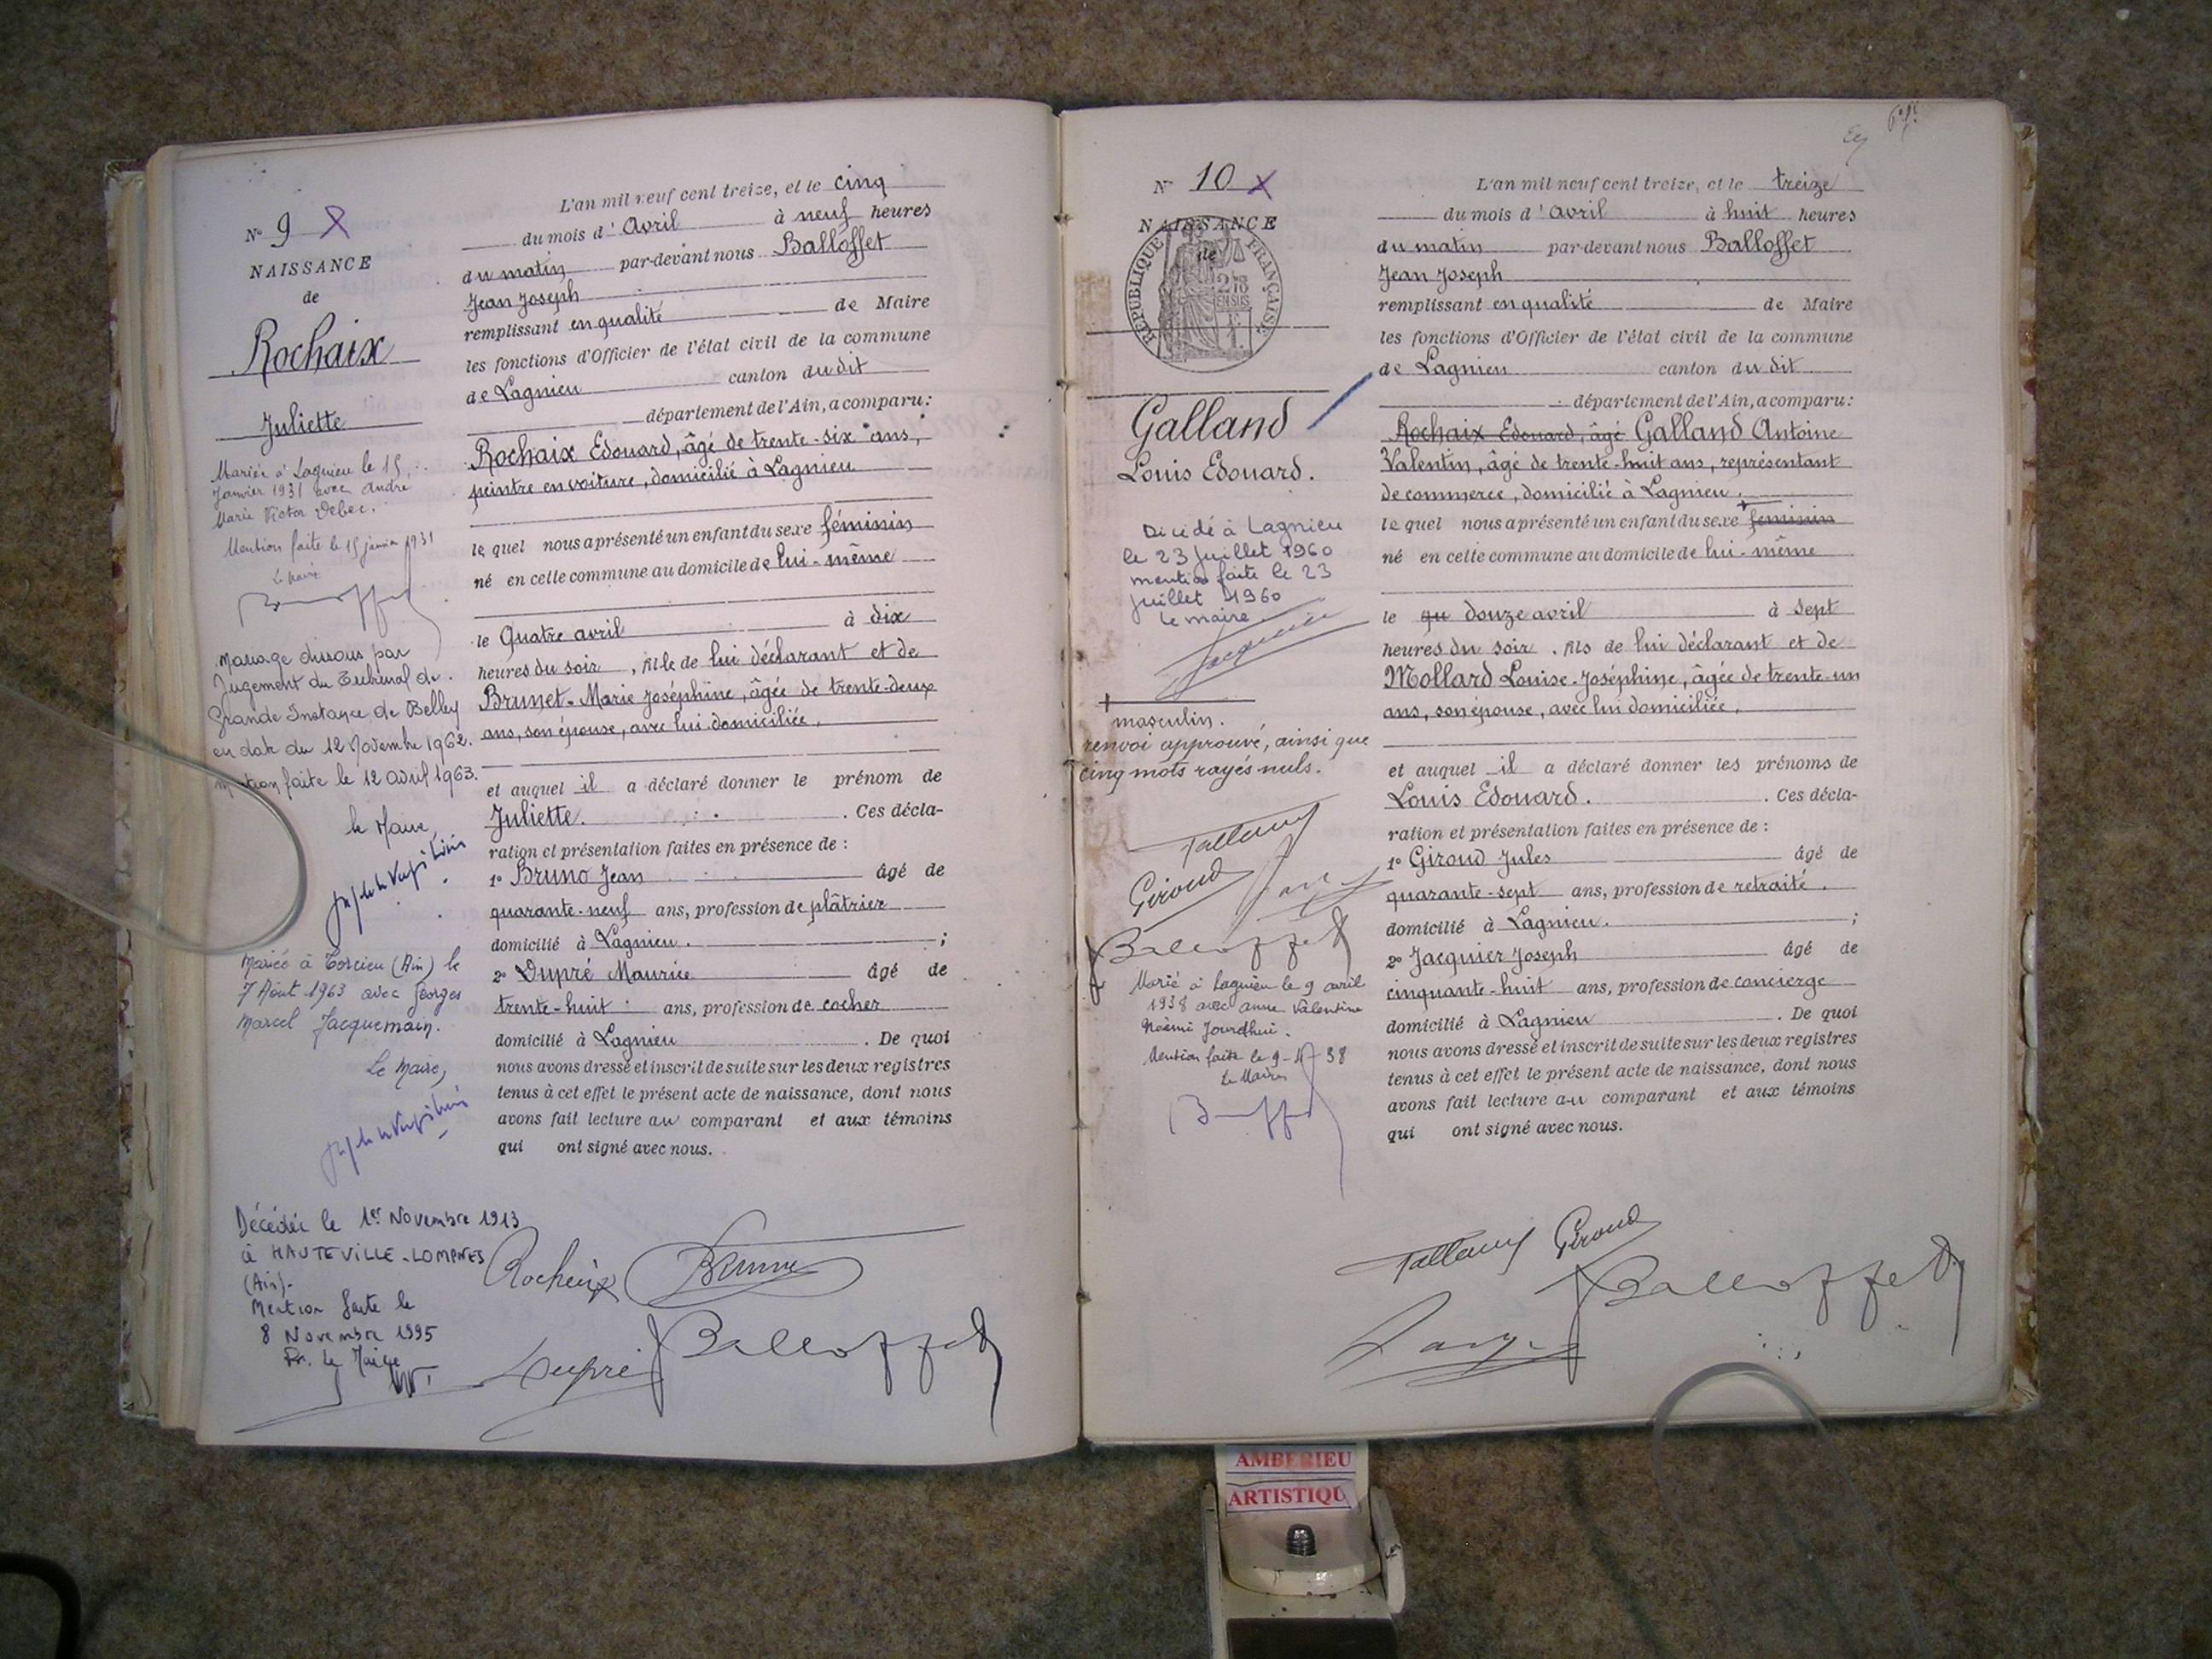 N° 9
NAISSANCE
de
Rochaix
Juliette
Mariée à Lagnieu le 15
Janvier 1931 avec André
Marie Victor Debec.
Mention faite le 15 janvier 1931
Le Maire
Mariage dissous par
Jugement du Tribunal de
Grande Instance de Belley
en date du 12 Novembre 1962.
mention faite le 12 avril 1963.
le Maire,
Mariée à Torcieu (Ain) le
7 Août 1963 avec Georges
Marcel Jacquemain.
Le Maire,
Décédée le 1er Novembre 1913
à HAUTEVILLE-LOMPNES
(Ain).
Mention faite le
8 Novembre 1995
Le Maire
L'an mil neuf cent treize, et le cinq
du mois d'Avril à neuf heures
du matin par-devant nous Balloffet
Jean Joseph
remplissant en qualité de Maire
les fonctions d'Officier de l'état civil de la commune
de Lagnieu canton du dit
département de l'Ain, a comparu:
Rochaix Edouard, âgé de trente-six ans,
peintre en voiture, domicilié à Lagnieu
le quel nous a présenté un enfant du sexe féminin
né en cette commune au domicile de lui-même
le Quatre avril à dix
heures du soir, fille de lui déclarant et de
Brunet Marie Joséphine, âgée de trente-deux
ans, son épouse, avec lui domiciliée,
et auquel il a déclaré donner le prénom de
Juliette. Ces décla-
ration et présentation faites en présence de :
1° Bruno Jean âgé de
quarante-neuf ans, profession de plâtrier
domicilié à Lagnieu. ;
2° Dupré Maurice âgé de
trente-huit ans, profession de cocher
domicilié à Lagnieu. De quoi
nous avons dressé et inscrit de suite sur les deux registres
tenus à cet effet le présent acte de naissance, dont nous
avons fait lecture au comparant et aux témoins
qui ont signé avec nous.
Rochaix Bruno
Dupré Balloffet
N° 10
NAISSANCE
de
RÉPUBLIQUE FRANÇAISE
2/10
EN SUS
Galland
Louis Edouard.
Décédé à Lagnieu
le 23 Juillet 1960
mention faite le 23
Juillet 1960
le maire
masculin.
renvoi approuvé, ainsi que
cinq mots rayés nuls.
Galland
Giroud
Balloffet
Marié à Lagnieu le 9 avril
1938 avec Anne Valentine
Noémie Jourdhui.
Mention faite le 9-4-38
Le Maire
L'an mil neuf cent treize, et le treize
du mois d'avril à huit heures
du matin par-devant nous Balloffet
Jean Joseph
remplissant en qualité de Maire
les fonctions d'Officier de l'état civil de la commune
de Lagnieu canton du dit
département de l'Ain, a comparu:
Rochaix Edouard, âgé Galland Antoine
Valentin, âgé de trente-huit ans, représentant
de commerce, domicilié à Lagnieu.
le quel nous a présenté un enfant du sexe + féminin
né en cette commune au domicile de lui-même
le qu douze avril à sept
heures du soir. fils de lui déclarant et de
Mollard Louise-Joséphine, âgée de trente-un
ans, son épouse, avec lui domiciliée,
et auquel il a déclaré donner les prénoms de
Louis Edouard. Ces décla-
ration et présentation faites en présence de :
1° Giroud Jules âgé de
quarante-sept ans, profession de retraité.
domicilié à Lagnieu. ;
2° Jacquier Joseph âgé de
cinquante-huit ans, profession de concierge
domicilié à Lagnieu. De quoi
nous avons dressé et inscrit de suite sur les deux registres
tenus à cet effet le présent acte de naissance, dont nous
avons fait lecture au comparant et aux témoins
qui ont signé avec nous.
Galland Giroud
Balloffet
AMBERIEU
ARTISTIQU